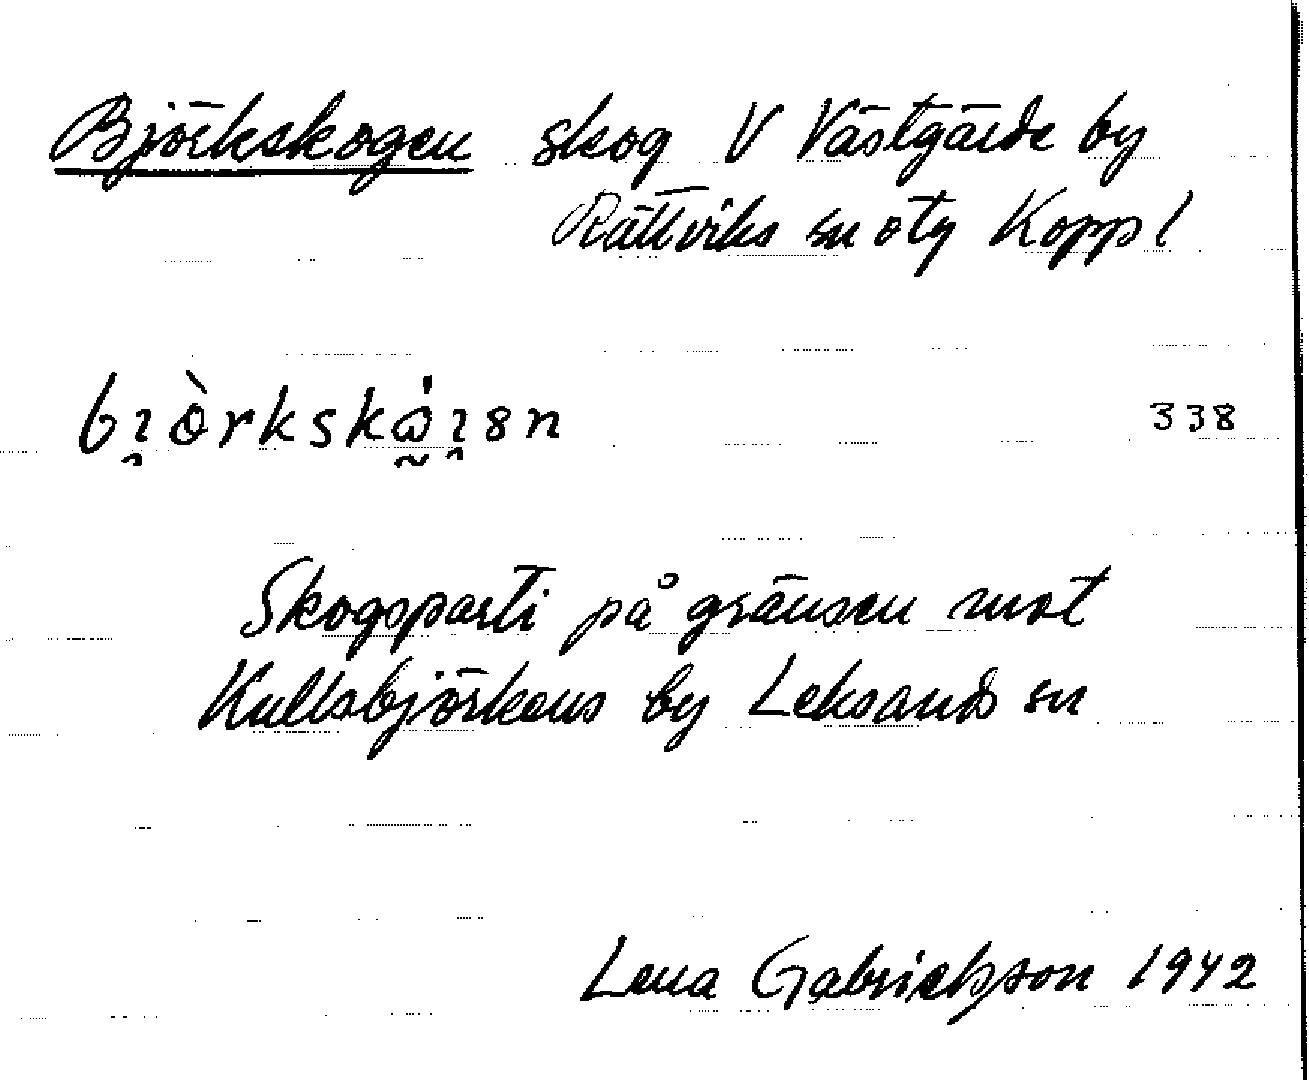 Björkskogen skog V Västgärde by
Rättviks sn o tg Kopp l
338
Skogsparti på gränsen mot
Kullsbjörkens by Leksands sn
Lena Gabrielsson 1942